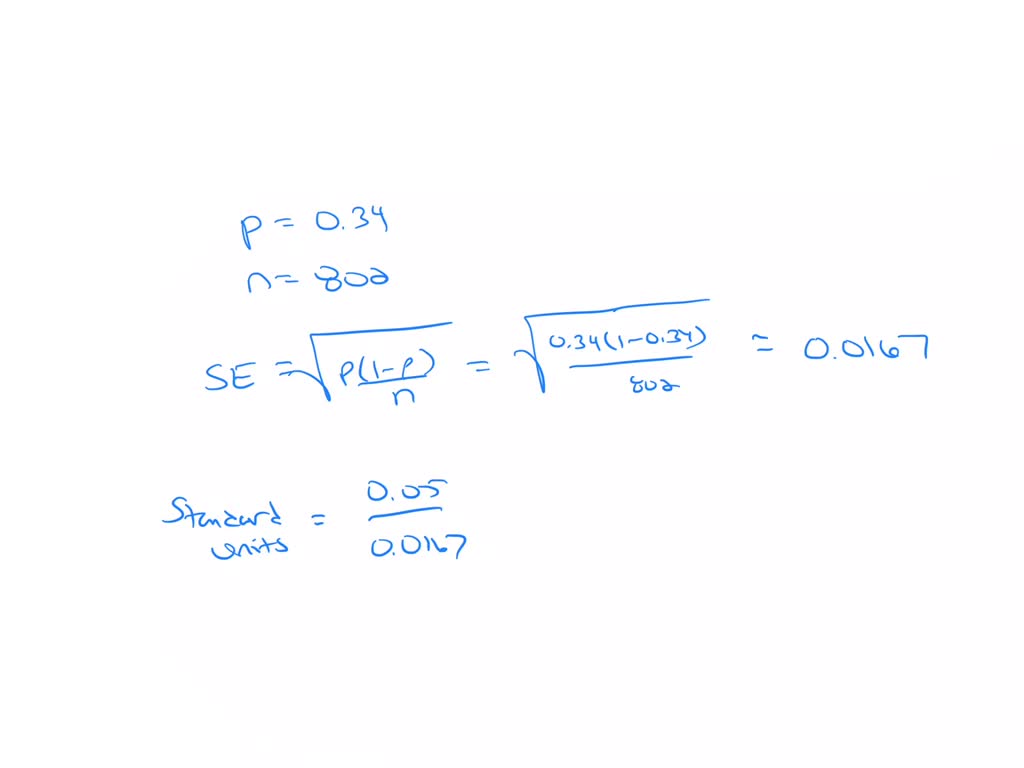 p = 0.34
n = 802
SE = √(p(1-p)/n) = √(0.34(1-0.34)/802) = 0.0167
Standard units = 0.05/0.0167